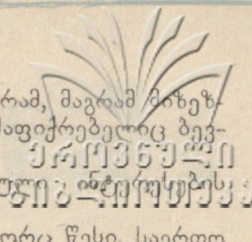 რამ, მაგრამ მიზეზ-
საფიქრებელიც ბევ-
ეროვნული
ული ინტერესების
ბიბლიოთეკა
ორც წესი, საერთო